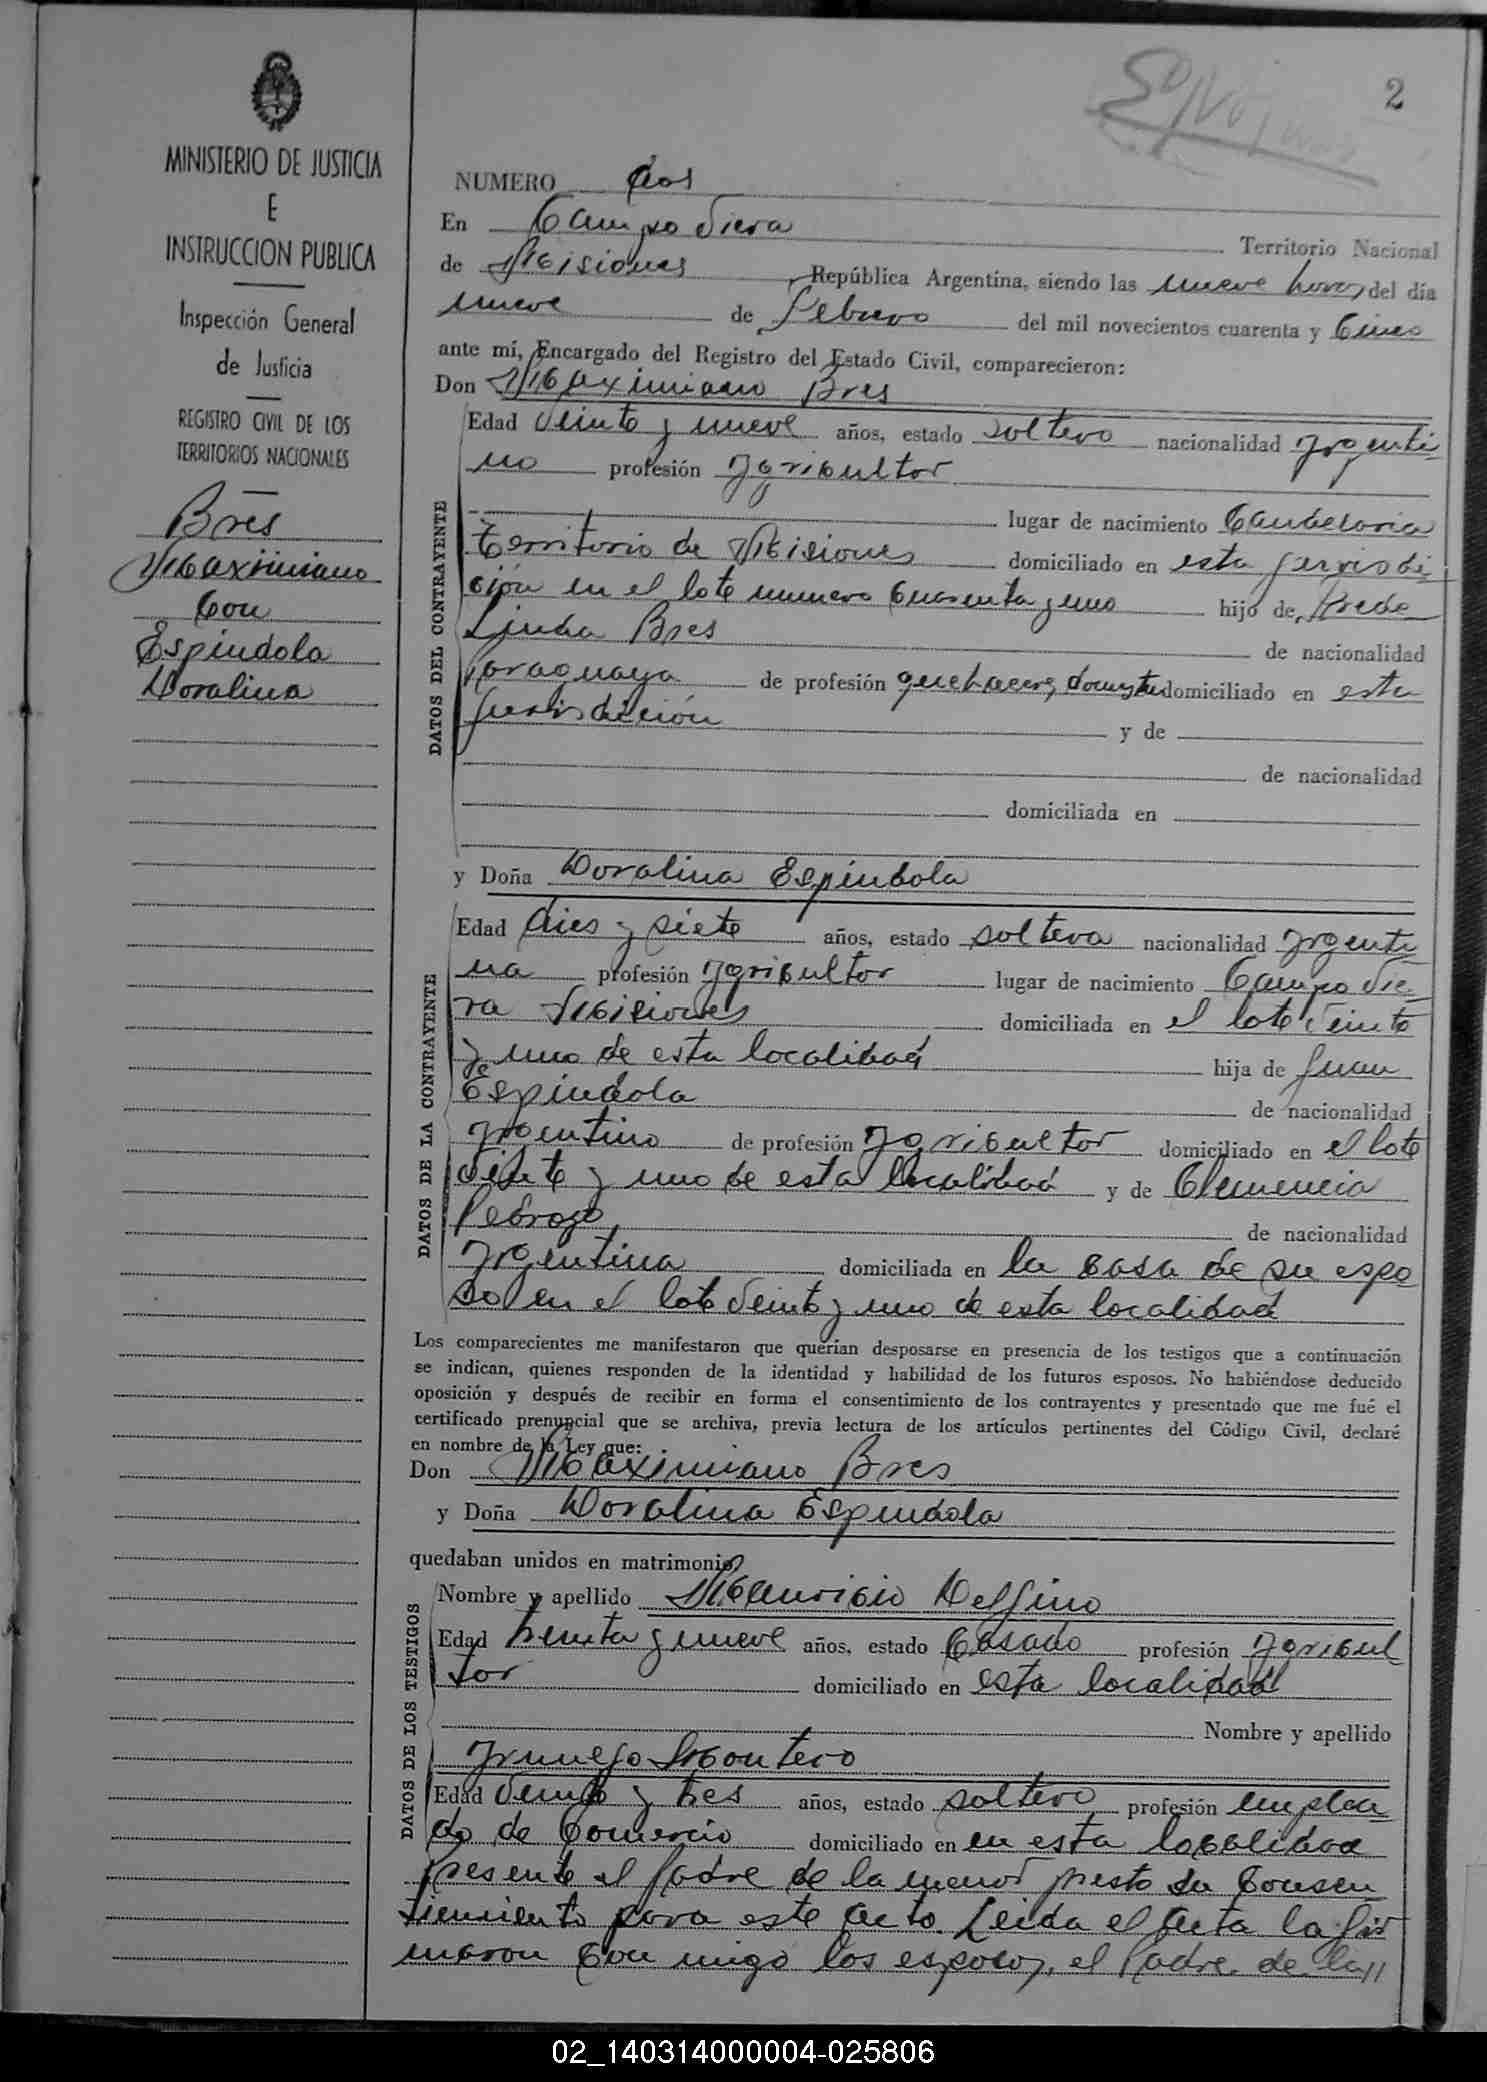 2
MINISTERIO DE JUSTICIA
E
INSTRUCCION PUBLICA
Inspección General
de Justicia
REGISTRO CIVIL DE LOS
TERRITORIOS NACIONALES
Bres
Maximiano
Con
Espindola
Doralina
NUMERO dos
En Campo Viera Territorio Nacional
de Misiones, República Argentina, siendo las nueve horas del día
nueve de Febrero del mil novecientos cuarenta y Cinco
ante mí, Encargado del Registro del Estado Civil, comparecieron:
Don Maximiano Bres
DATOS DEL CONTRAYENTE
Edad Veinte y nueve años, estado soltero nacionalidad Argenti-
no profesión Agricultor
lugar de nacimiento Candelaria
Territorio de Misiones domiciliado en esta jurisdi-
ción en el lote numero Cuarenta y uno hijo de
Linda Bres de nacionalidad
Paraguaya de profesión quehaceres domiciliado en esta
jurisdición y de
de nacionalidad
domiciliada en
y Doña Doralina Espindola
DATOS DE LA CONTRAYENTE
Edad dies y siete años, estado soltera nacionalidad Argenti-
na profesión Agricultor lugar de nacimiento Campo Vie-
ra Misiones domiciliada en el lote Veinte
y uno de esta localidad hija de Juan
de Espindola de nacionalidad
Argentino de profesión Agricultor domiciliado en el lote
Veinte y uno de esta localidad y de Clemencia
Pedrozo de nacionalidad
Argentina domiciliada en la casa de su espo
so en el lote Veinte y uno de esta localidad
Los comparecientes me manifestaron que querían desposarse en presencia de los testigos que a continuación
se indican, quienes responden de la identidad y habilidad de los futuros esposos. No habiéndose deducido
oposición y después de recibir en forma el consentimiento de los contrayentes y presentado que me fué el
certificado prenupcial que se archiva, previa lectura de los artículos pertinentes del Código Civil, declaré
en nombre de la Ley que:
Don Maximiano Bres
y Doña Doralina Espindola
quedaban unidos en matrimonio
DATOS DE LOS TESTIGOS
Nombre y apellido Mauricio Delfino
Edad treinta y nueve años, estado Casado profesión Agricul
tor domiciliado en esta localidad
Nombre y apellido
Montero
Edad Veinte y tres años, estado soltero profesión emplea
do de Comercio domiciliado en en esta localidad
Presente el Padre de la menor presto su Consen
timiento para este acto. Leida el acta la fir
maron Con migo los esposos, el Padre de la//
02_140314000004-025806